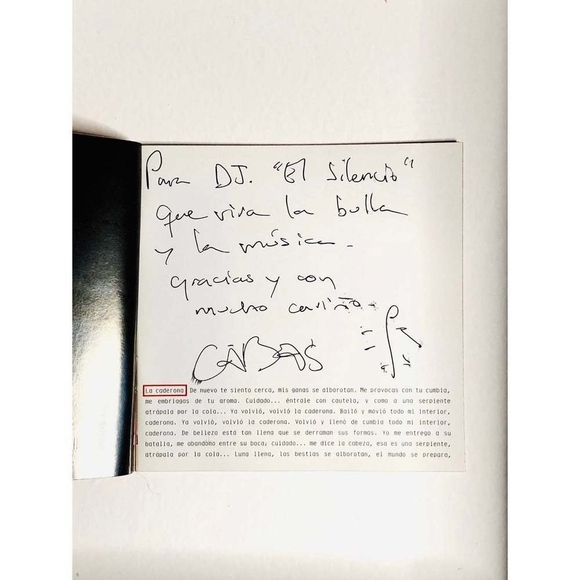 Para DJ. "El Silencio"
que viva la bulla
y la música -
gracias y con
mucho cariño
CABAS
La caderona De nuevo te siento cerca, mis ganas se alborotan. Me provocas con tu cumbia,
me embriagas de tu aroma. Cuidado... éntrale con cautela, y como a una serpiente
atrápala por la cola... Ya volvió, volvió la caderona. Bailó y movió todo mi interior,
caderona. Ya volvió, volvió la caderona. Volvió y llenó de cumbia todo mi interior,
caderona. De belleza está tan llena que se derraman sus formas. Yo me entrego a su
batalla, me abandono entre su boca; cuidado... me dice la cabeza, esa es una serpiente,
atrápala por la cola... Luna llena, las bestias se alborotan, el mundo se prepara,